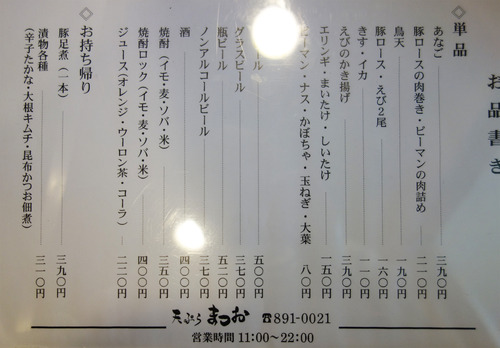 お品書き
◇単品
あなご 三九〇円
豚ロースの肉巻き・ピーマンの肉詰め 二〇〇円
鳥天 一九〇円
豚ロース・えび2尾 一六〇円
きす・イカ 一一〇円
えびのかき揚げ 三九〇円
エリンギ・まいたけ・しいたけ 一五〇円
ーマン・ナス・かぼちゃ・玉ねぎ・大葉 八〇円
ール 五〇〇円
グラスビール 三七〇円
瓶ビール 五二〇円
ノンアルコールビール 三七〇円
酒 四〇〇円
焼酎(イモ・麦・ソバ・米) 三五〇円
焼酎ロック(イモ・麦・ソバ・米) 四〇〇円
ジュース(オレンジ・ウーロン茶・コーラ) 二二〇円
◇お持ち帰り
豚足煮(一本) 三九〇円
漬物各種 三一〇円
(辛子たかな・大根キムチ・昆布かつお佃煮)
天ぷら まつお ☎891-0021
営業時間 11:00〜22:00